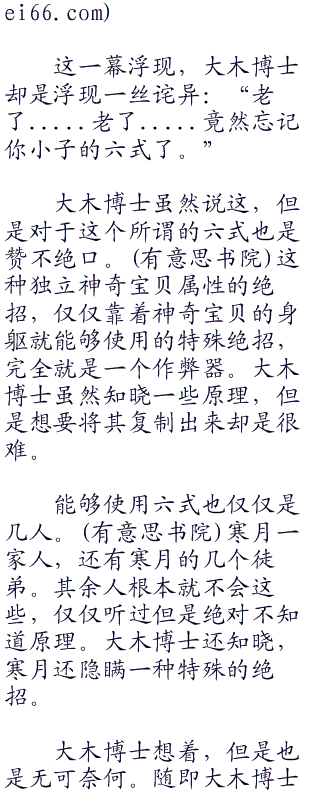 ei66.com)
这一幕浮现，大木博士
却是浮现一丝诧异：“老
了.....老了.....竟然忘记
你小子的六式了。”
大木博士虽然说这，但
是对于这个所谓的六式也是
赞不绝口。(有意思书院)这
种独立神奇宝贝属性的绝
招，仅仅靠着神奇宝贝的身
躯就能够使用的特殊绝招，
完全就是一个作弊器。大木
博士虽然知晓一些原理，但
是想要将其复制出来却是很
难。
能够使用六式也仅仅是
几人。(有意思书院)寒月一
家人，还有寒月的几个徒
弟。其余人根本就不会这
些，仅仅听过但是绝对不知
道原理。大木博士还知晓，
寒月还隐瞒一种特殊的绝
招。
大木博士想着，但是也
是无可奈何。随即大木博士